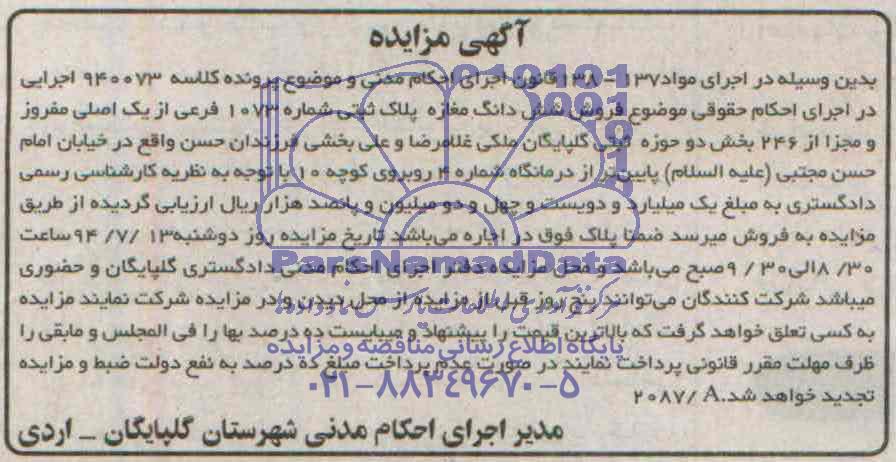 آگهی مزایده
بدین وسیله در اجرای مواد۱۳۷ - ۱۳۸ قانون اجرای احکام مدنی و موضوع پرونده کلاسه ۹۴۰۰۷۳ اجرایی
در اجرای احکام حقوقی موضوع فروش شش دانگ مغازه پلاک ثبتی شماره ۱۰۷۳ فرعی از یک اصلی مفروز
و مجزا از ۲۴۶ بخش دو حوزه ثبتی گلپایگان ملکی غلامرضا و علی بخشی فرزندان حسن واقع در خیابان امام
حسن مجتبی (علیه السلام) پایین‌تر از درمانگاه شماره ۴ روبروی کوچه ۱۰ با توجه به نظریه کارشناسی رسمی
دادگستری به مبلغ یک میلیارد و دویست و چهل و دو میلیون و پانصد هزار ریال ارزیابی گردیده از طریق
مزایده به فروش میرسد ضمنا پلاک فوق در اجاره می‌باشد تاریخ مزایده روز دوشنبه۱۳ /۷/ ۹۴ساعت
۳۰/ ۸الی۳۰/ ۹صبح می‌باشد و محل مزایده دفتر اجرای احکام مدنی دادگستری گلپایگان و حضوری
میباشد شرکت کنندگان می‌توانند پنج روز قبل از مزایده از محل دیدن و در مزایده شرکت نمایند مزایده
به کسی تعلق خواهد گرفت که بالاترین قیمت را پیشنهاد و میبایست ده درصد بها را فی المجلس و مابقی را
ظرف مهلت مقرر قانونی پرداخت نمایند در صورت عدم پرداخت مبلغ ده درصد به نفع دولت ضبط و مزایده
تجدید خواهد شد.A /۲۰۸۷
مدیر اجرای احکام مدنی شهرستان گلپایگان _ اردی
ParsNamadData
پایگاه اطلاع رسانی مناقصه و مزایده
۰۲۱-۸۸۳۴۹۶۷۰-۵